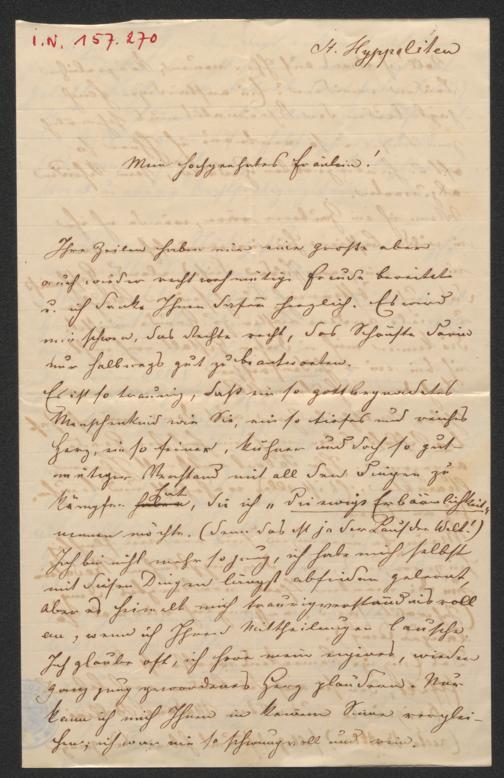 I.N. 157.270
St. Hyppoliten
Mein hochgeehrtes Fräulein!
Ihre Zeilen haben mir eine große aber
auch wieder recht wehmütige Freude bereitet
u. ich danke Ihnen dafür herzlich. Es wird
mir schwer, das Rechte recht, das Schönste darin
nur halbwegs gut zu beantworten.
Es ist so traurig, daß ein so gottbegnadetes
Menschenkind wie Sie, ein so tiefes und reiches
Herz, ein so feiner, kühner und doch so gut-
mütiger Verstand mit all den Dingen zu
kämpfen hat, die ich „die ewige Erbärmlichkeit“
nennen möchte. (denn das ist ja der Lauf der Welt!)
Ich bin nicht mehr so jung, ich habe mich selbst
mit diesen Dingen längst abfinden gelernt,
aber es heimelt mich traurigverständnisvoll
an, wenn ich Ihren Mittheilungen lausche
Ich glaube oft, ich höre mein eigenes, wieder
ganz jung gewordenes Herz plaudern. Nur
kann ich mich Ihnen in keinem Sinne verglei-
chen; ich war nie so schwungvoll und rein.